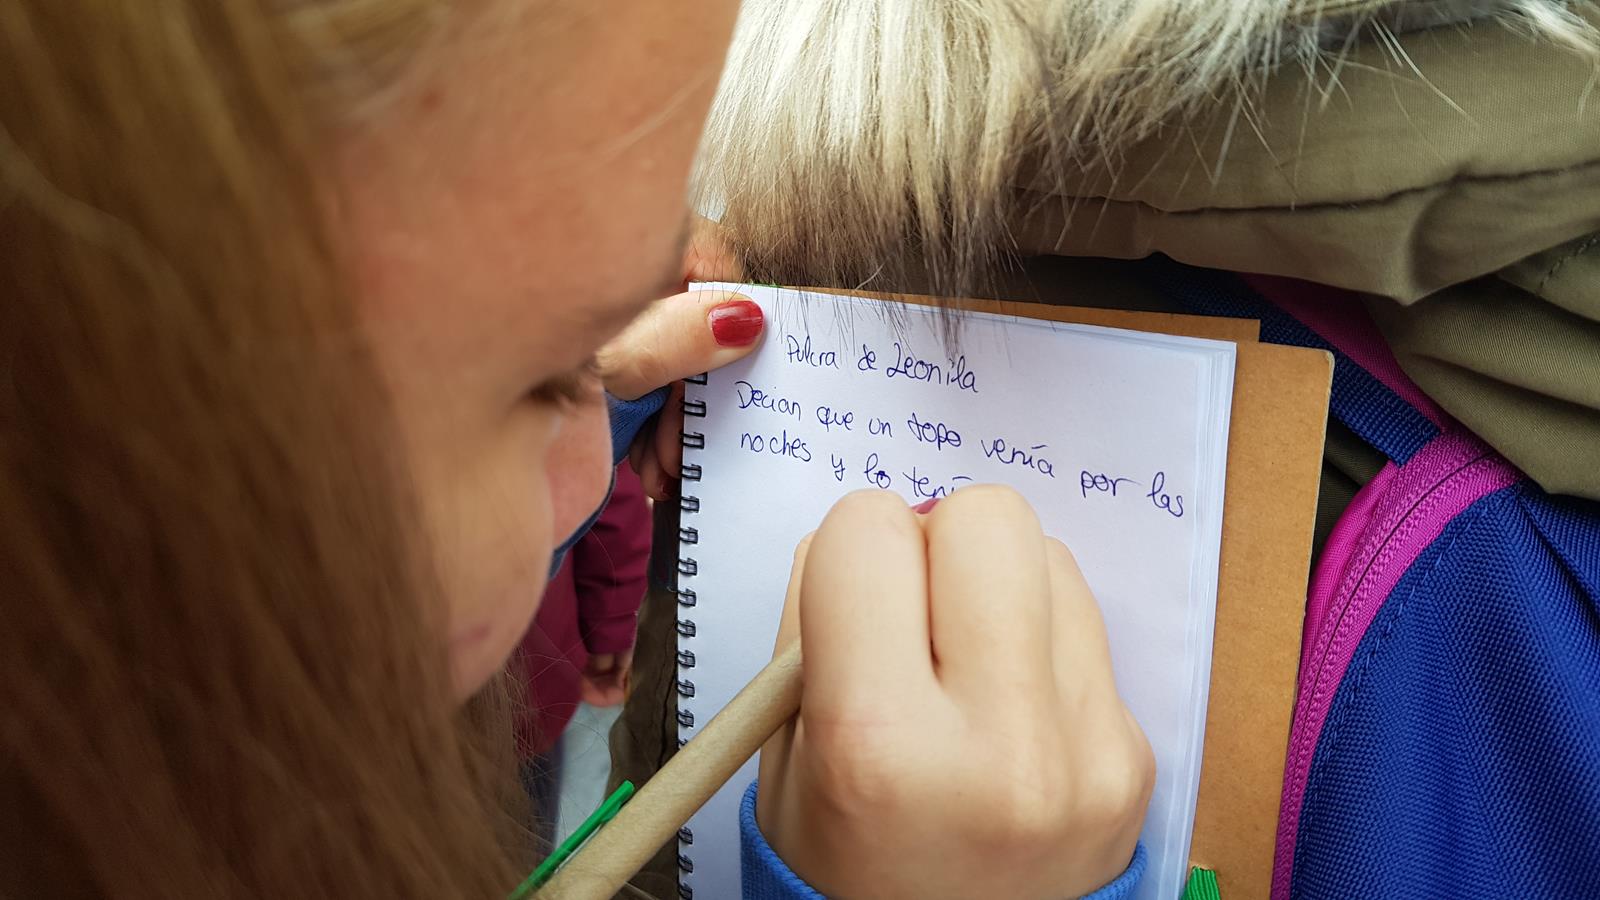 Pulcra de Leonila
Decian que un topo venía por las
noches y lo tení